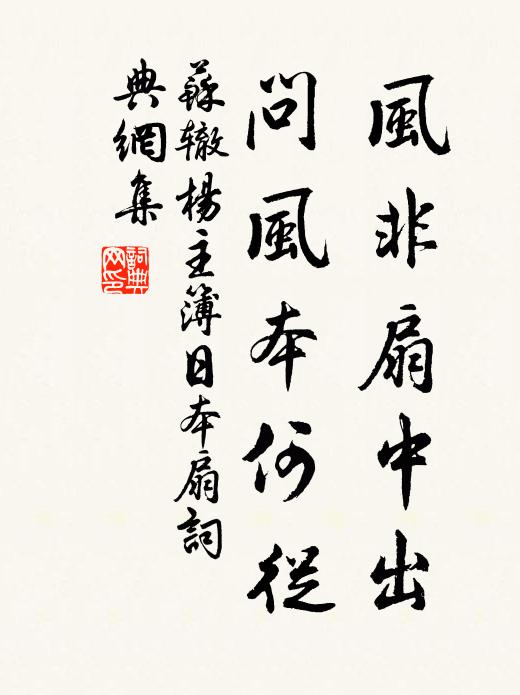 風非扇中出
問風本何從
蘇辙楊主簿日本扇詞
典網集
詞典
网印